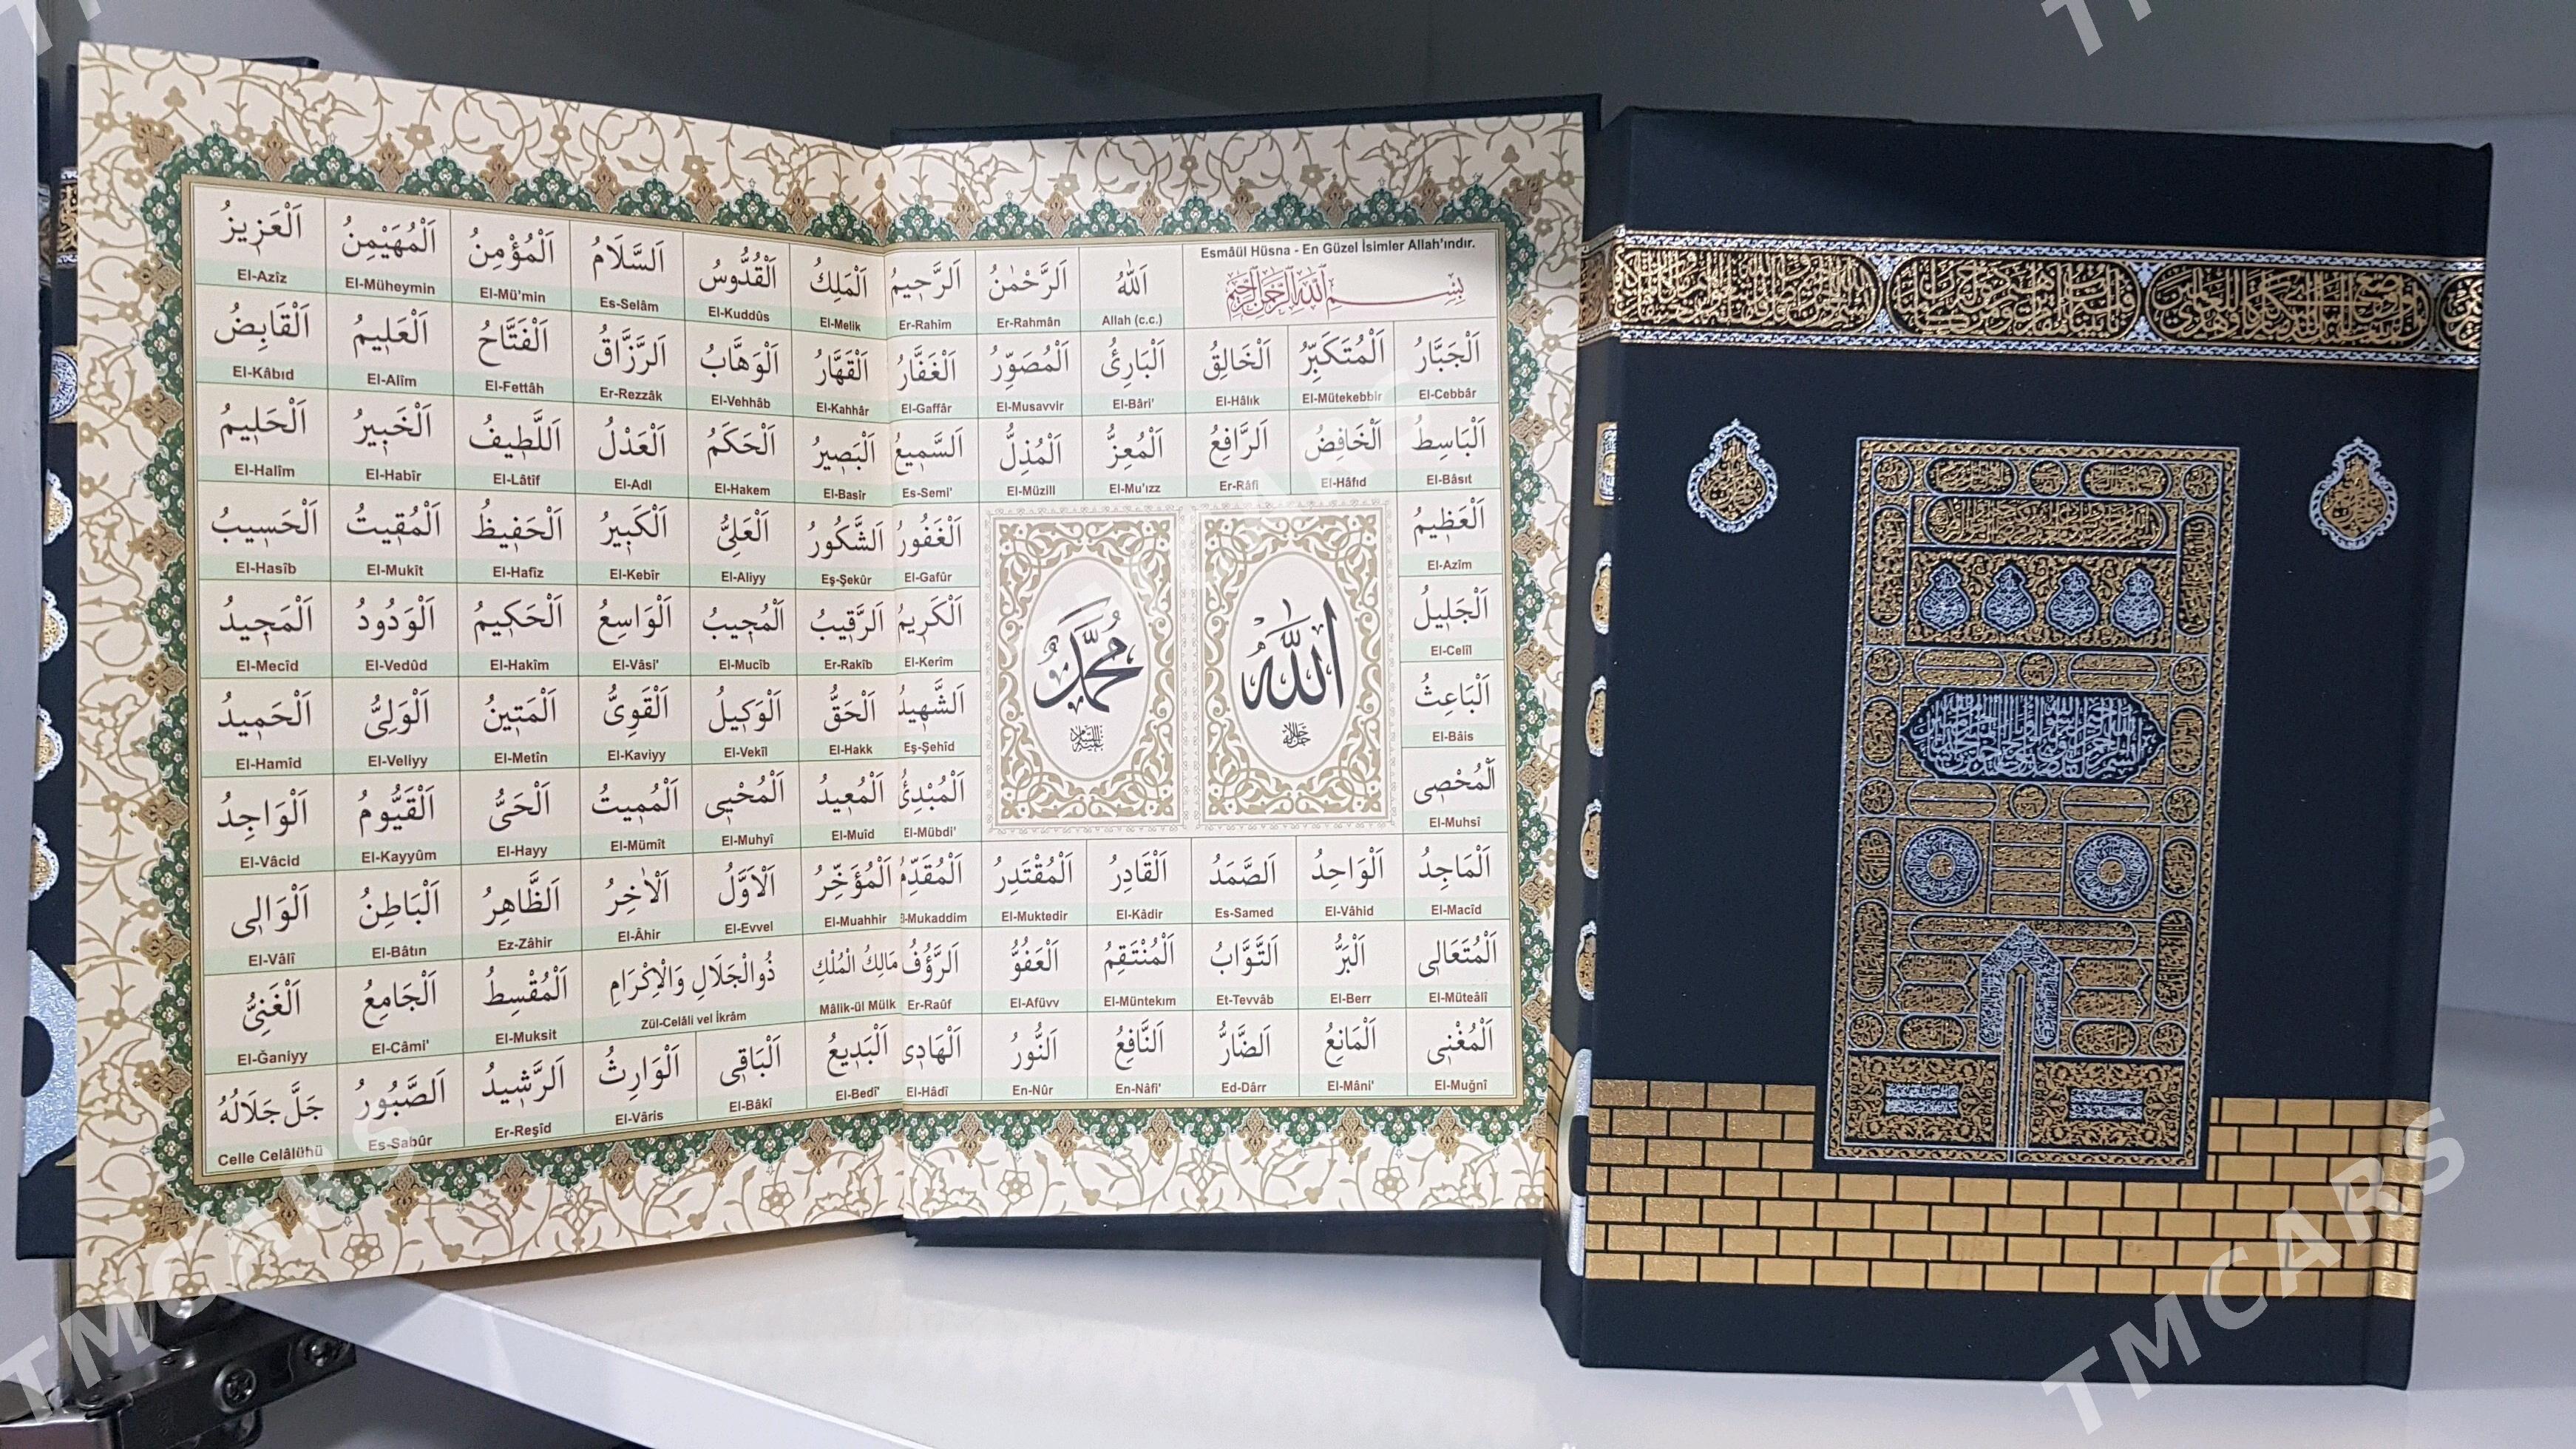 Esmâül Hüsna - En Güzel İsimler Allah'ındır.
بِسْمِ اللهِ الرَّحْمٰنِ الرَّحِيمِ
اَللّٰهُ
Allah (c.c.)
اَلرَّحْمٰنُ
Er-Rahmân
اَلرَّحِيمُ
Er-Rahîm
اَلْمَلِكُ
El-Melik
اَلْقُدُّوسُ
El-Kuddûs
اَلسَّلَامُ
Es-Selâm
اَلْمُؤْمِنُ
El-Mü'min
اَلْمُهَيْمِنُ
El-Müheymin
اَلْعَزِيزُ
El-Azîz
اَلْجَبَّارُ
El-Cebbâr
اَلْمُتَكَبِّرُ
El-Mütekebbir
اَلْخَالِقُ
El-Hâlık
اَلْبَارِئُ
El-Bâri'
اَلْمُصَوِّرُ
El-Musavvir
اَلْغَفَّارُ
El-Gaffâr
اَلْقَهَّارُ
El-Kahhâr
اَلْوَهَّابُ
El-Vehhâb
اَلرَّزَّاقُ
Er-Rezzâk
اَلْفَتَّاحُ
El-Fettâh
اَلْعَلِيمُ
El-Alîm
اَلْقَابِضُ
El-Kâbıd
اَلْبَاسِطُ
El-Bâsıt
اَلْخَافِضُ
El-Hâfıd
اَلرَّافِعُ
Er-Râfi
اَلْمُعِزُّ
El-Mu'ızz
اَلْمُذِلُّ
El-Müzill
اَلسَّمِيعُ
Es-Semi'
اَلْبَصِيرُ
El-Basîr
اَلْحَكَمُ
El-Hakem
اَلْعَدْلُ
El-Adl
اَللَّطِيفُ
El-Lâtîf
اَلْخَبِيرُ
El-Habîr
اَلْحَلِيمُ
El-Halîm
اَلْعَظِيمُ
El-Azîm
اَلْغَفُورُ
El-Gafûr
اَلشَّكُورُ
Eş-Şekûr
اَلْعَلِيُّ
El-Aliyy
اَلْكَبِيرُ
El-Kebîr
اَلْحَفِيظُ
El-Hafîz
اَلْمُقِيتُ
El-Mukît
اَلْحَسِيبُ
El-Hasîb
اَلْجَلِيلُ
El-Celîl
اَلْكَرِيمُ
El-Kerîm
اَلرَّقِيبُ
Er-Rakîb
اَلْمُجِيبُ
El-Mucîb
اَلْوَاسِعُ
El-Vâsi'
اَلْحَكِيمُ
El-Hakîm
اَلْوَدُودُ
El-Vedûd
اَلْمَجِيدُ
El-Mecîd
اَلْبَاعِثُ
El-Bâis
اَلشَّهِيدُ
Eş-Şehîd
اَلْحَقُّ
El-Hakk
اَلْوَكِيلُ
El-Vekîl
اَلْقَوِيُّ
El-Kaviyy
اَلْمَتِينُ
El-Metîn
اَلْوَلِيُّ
El-Veliyy
اَلْحَمِيدُ
El-Hamîd
اَلْمُحْصِى
El-Muhsî
اَلْمُبْدِئُ
El-Mübdi'
اَلْمُعِيدُ
El-Muîd
اَلْمُحْيِى
El-Muhyî
اَلْمُمِيتُ
El-Mümît
اَلْحَيُّ
El-Hayy
اَلْقَيُّومُ
El-Kayyûm
اَلْوَاجِدُ
El-Vâcid
الله
جل جلاله
محمد
عليه السلام
اَلْمَاجِدُ
El-Macîd
اَلْوَاحِدُ
El-Vâhid
اَلصَّمَدُ
Es-Samed
اَلْقَادِرُ
El-Kâdir
اَلْمُقْتَدِرُ
El-Muktedir
اَلْمُقَدِّمُ
El-Mukaddim
اَلْمُؤَخِّرُ
El-Muahhir
اَلْاَوَّلُ
El-Evvel
اَلْاٰخِرُ
El-Âhir
اَلظَّاهِرُ
Ez-Zâhir
اَلْبَاطِنُ
El-Bâtın
اَلْوَالِى
El-Vâlî
اَلْمُتَعَالِى
El-Müteâlî
اَلْبَرُّ
El-Berr
اَلتَّوَّابُ
Et-Tevvâb
اَلْمُنْتَقِمُ
El-Müntekım
اَلْعَفُوُّ
El-Afüvv
اَلرَّؤُفُ
Er-Raûf
مَالِكُ الْمُلْكِ
Mâlik-ül Mülk
ذُوالْجَلَالِ وَالْاِكْرَامِ
Zül-Celâli vel İkrâm
اَلْمُقْسِطُ
El-Muksit
اَلْجَامِعُ
El-Câmi'
اَلْغَنِيُّ
El-Ğaniyy
اَلْمُغْنِى
El-Muğnî
اَلْمَانِعُ
El-Mâni'
اَلضَّارُّ
Ed-Dârr
اَلنَّافِعُ
En-Nâfi'
اَلنُّورُ
En-Nûr
اَلْهَادِى
El-Hâdî
اَلْبَدِيعُ
El-Bedî'
اَلْبَاقِى
El-Bâkî
اَلْوَارِثُ
El-Vâris
اَلرَّشِيدُ
Er-Reşîd
اَلصَّبُورُ
Es-Sabûr
جَلَّ جَلَالُهُ
Celle Celâlühü
TMCARS
TMCARS